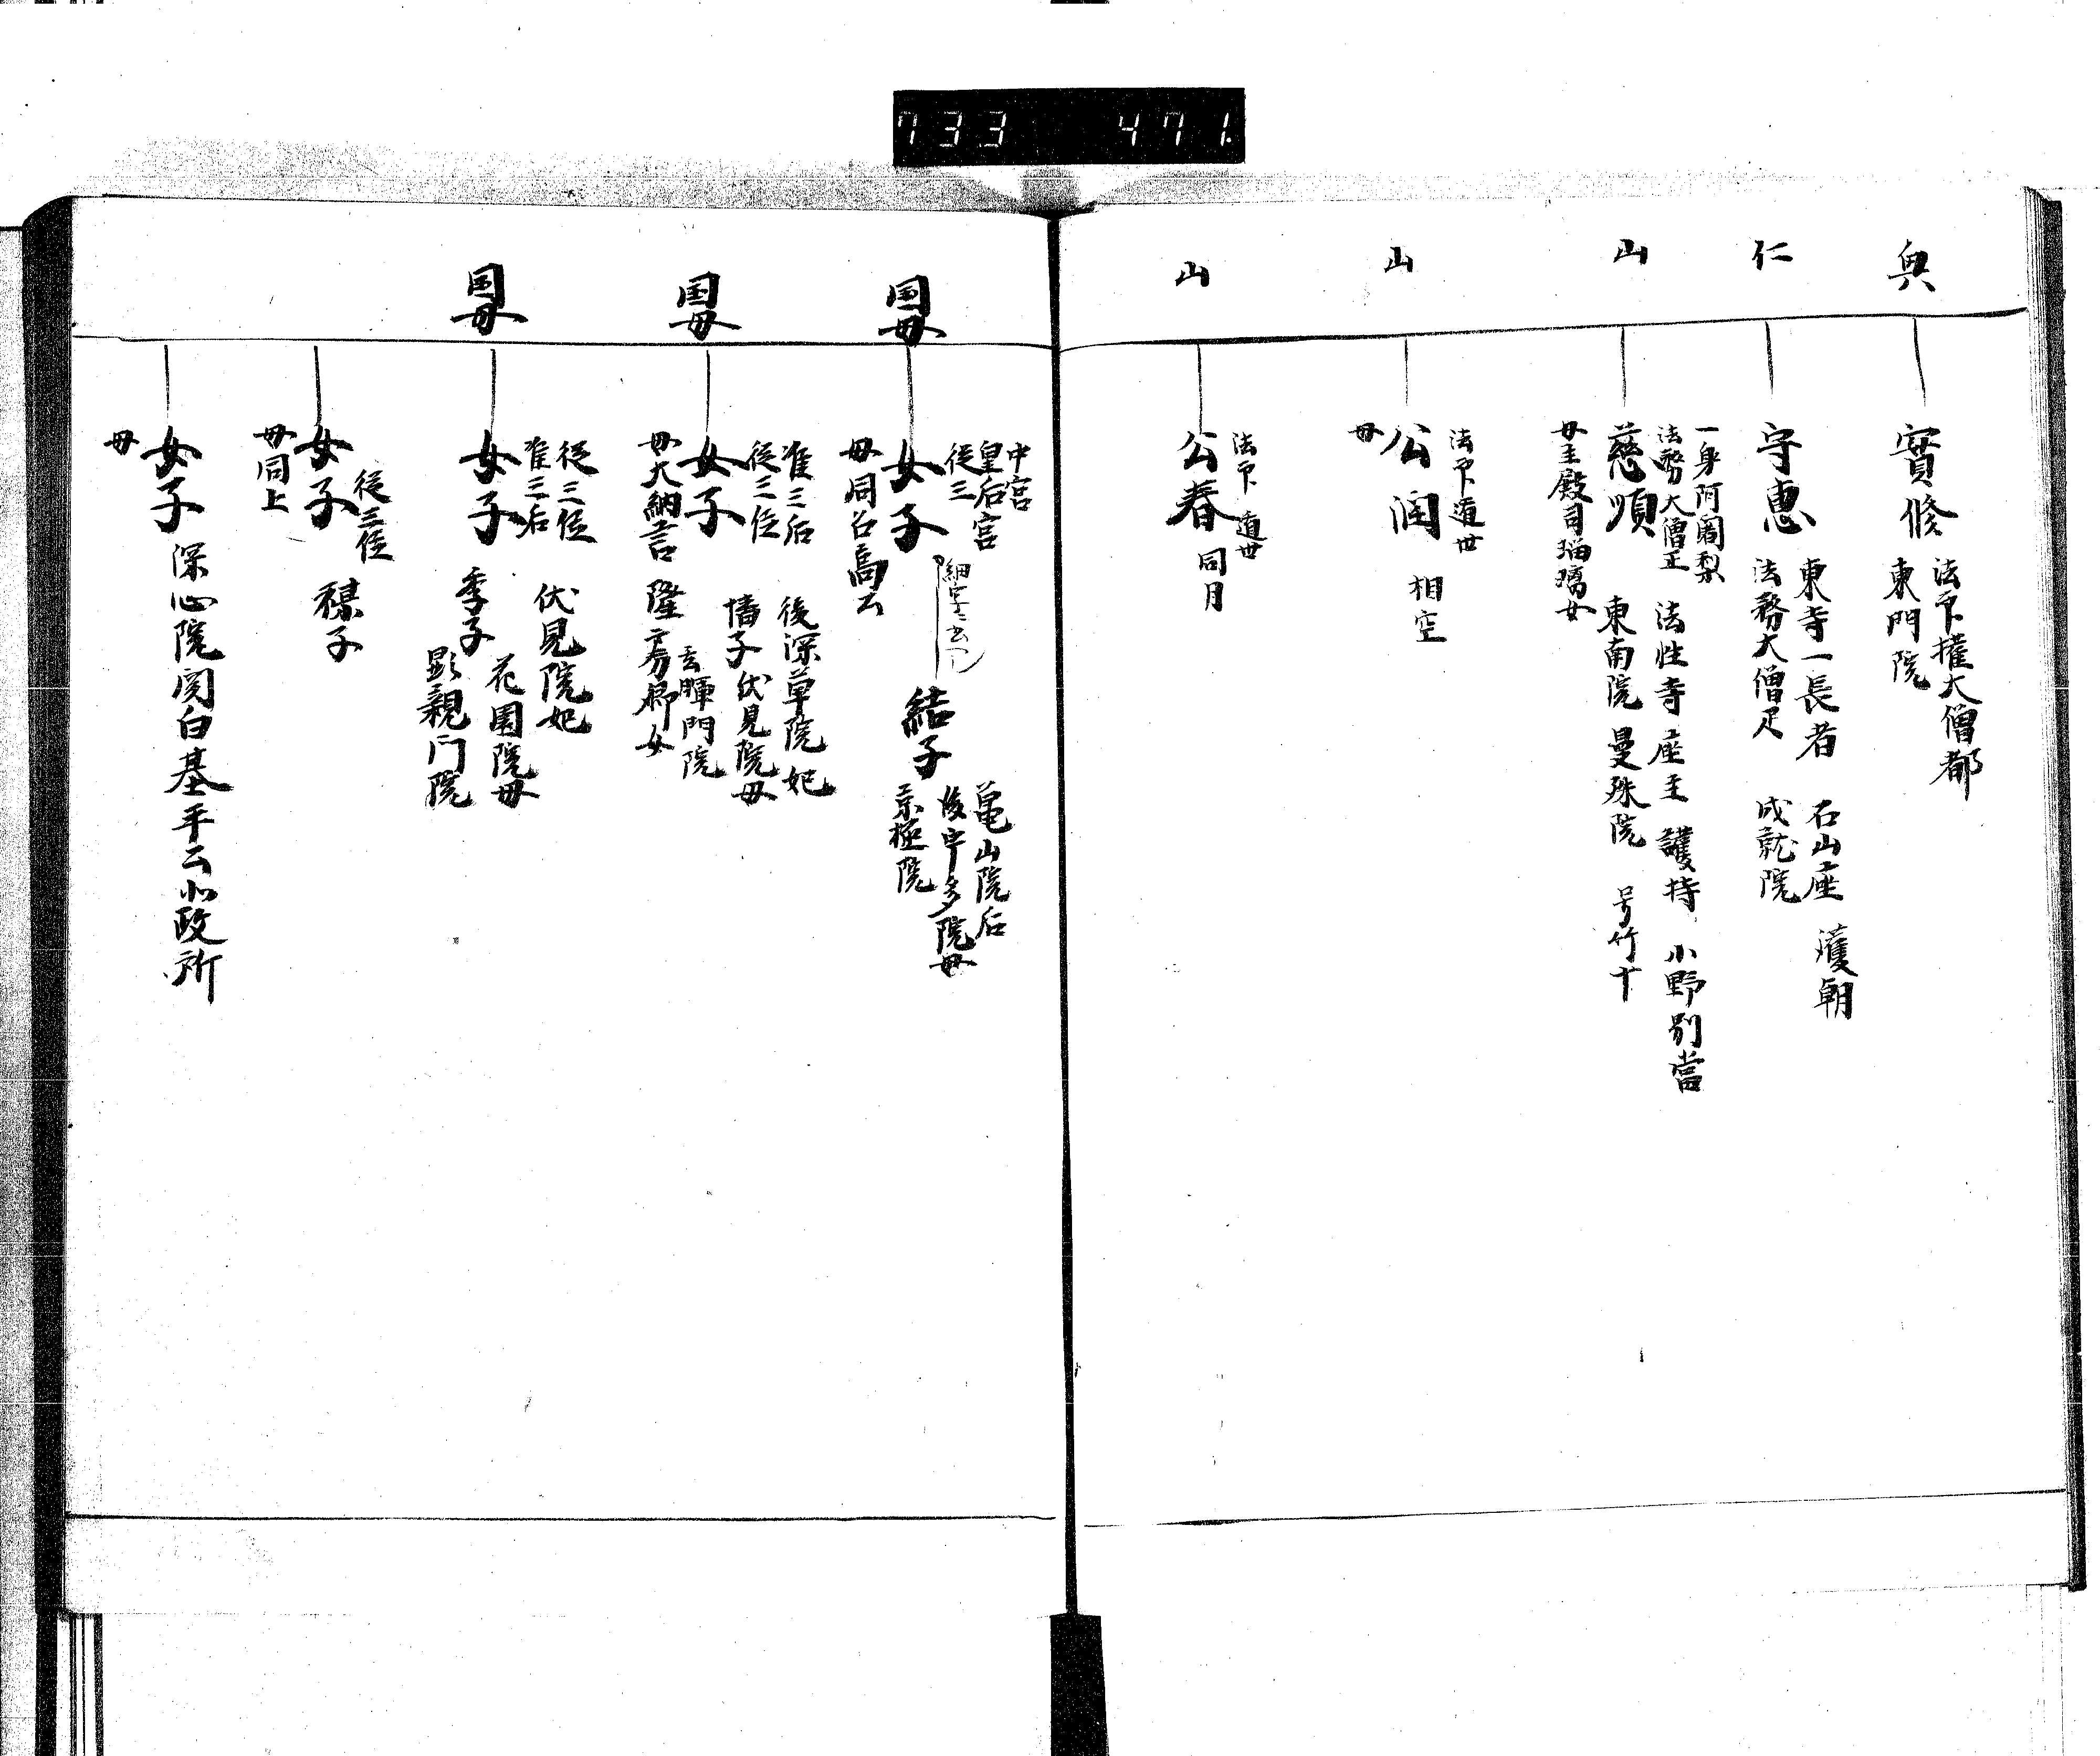 733 471
興
實修
法印權大僧都
東門院
仁
守恵
東寺一長者 石山座 護朝
法務大僧正 成就院
山
一身阿闍梨
法務大僧正 法性寺座主 護持 小野別當
慈順 東南院 曼殊院 号竹中
母主殿司瑠璃女
山
法印 遁世
公潤 相空
母
山
法印 遁世
公春 同月
国母
中宮
皇后宮
従三
女子 結子
亀山院后
後宇多院母
京極院
母同公
国母
准三后 後深草院妃
従三位 愔子伏見院母
女子 玄輝門院
母大納言隆房卿女
国母
従三位 伏見院妃
准三后 花園院母
女子 季子 顕親門院
従三位
女子 禖子
母同上
女子 深心院関白基平公北政所
母